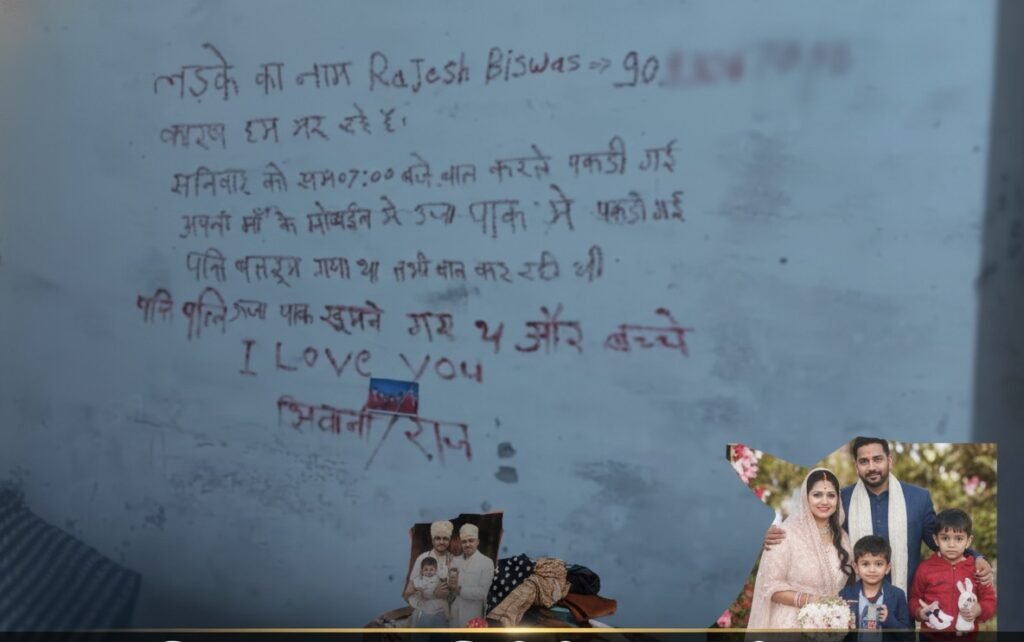 लड़के का नाम Rajesh Biswas → 90
कारण हम मर रहे है।
सनिवार को साम 07:00 बजे बात करते पकडी गई
अपनी माँ के मोबाईल से उजा पाक मे पकडी गई
पत्नि बातरूम गया था तभी बात कर रही थी
पति पत्नि उजा पाक घुमने गए थे और बच्चे
I Love You
शिवानी/राज